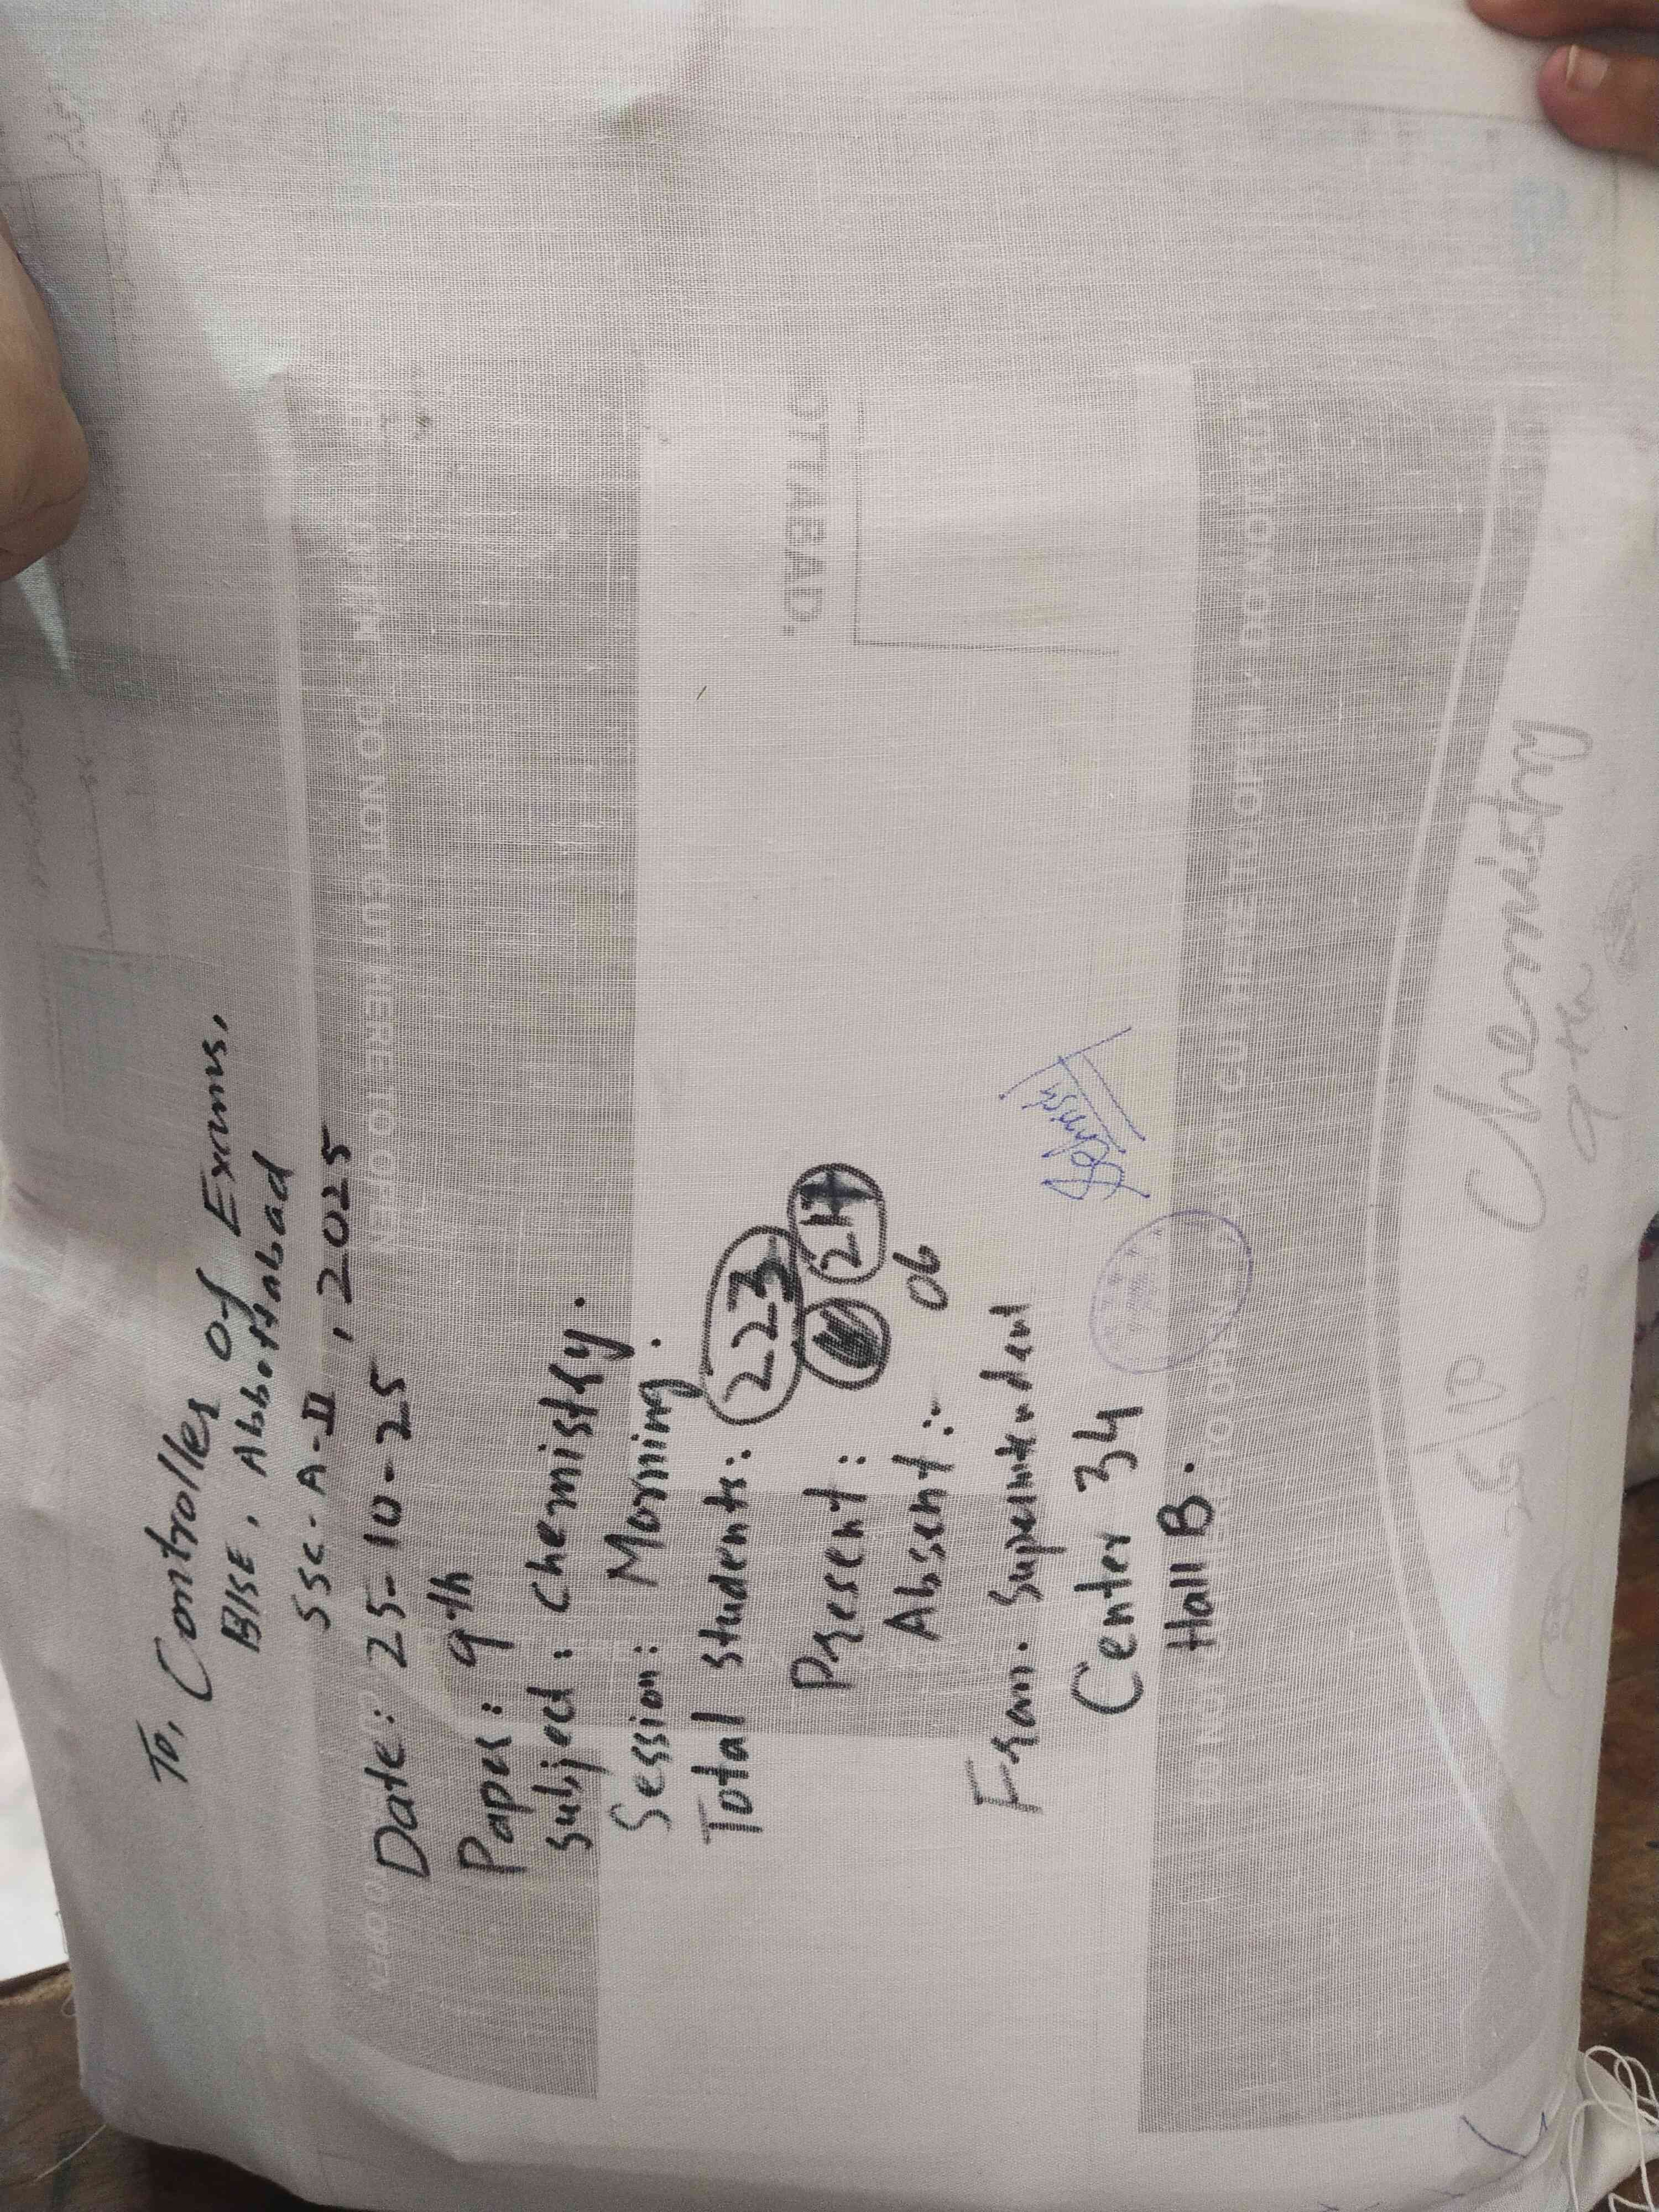 To, Controller of Exams,
BISE, Abbottabad
SSC-A-II, 2025
Date: 25-10-25
Paper: 9th
Subject: Chemistry.
Session: Morning.
Total students: 223
Present: 217
Absent: 06
From. Superintendent
Center 34
Hall B.
OTTABAD.
DO NOT CUT HERE TO OPEN
CUT HERE TO OPEN, DO NOT
Chemistry
9th